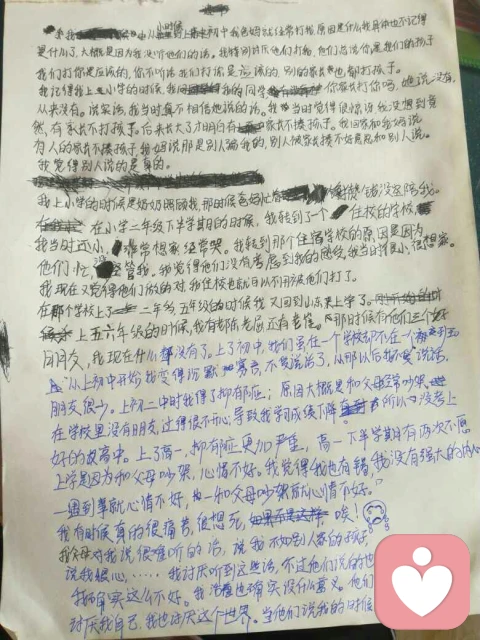 小时候
从上初中我爸妈就经常打我,原因是什么我真的也不记得
是什么了,大概是因为我没听他们的话。我特别讨厌他们打我,他们总说你是我们的孩子
我们打你是应该的,你不听话我们打你是应该的,别的家长也都打孩子。
我记得我上小学的时候,我问我的同学你家长打你吗,她说没有,
从来没有。说实话,我当时真不相信他说的话。我当时觉得很惊讶,我没想到竟
然有家长不打孩子。后来长大了才明白有家长不揍孩子。我回家和爸妈说
有人的家长不揍孩子,我妈说那是别人骗我的,别人被家长揍不好意思和别人说。
我觉得别人说的是真的。
我上小学的时候是奶奶照顾我,那时候爸妈忙着挣钱没空陪我。
在小学二年级下半学期的时候,我转到了个住校的学校
我当时还小,非常想家经常哭。我转到那个住宿学校的原因是因为
他们忙没空管我。我觉得他们没有考虑到我的感受,我当时很小,很想家。
我现在又觉得他们做的对,我住校也就可以不用被他们打了。
在那个学校上了二年多,五年级的时候我又回到小东关上学了。
上五六年级的时候,我有都东老屈还有老崔。那时候有他们三个好
同朋友,我现在什么都没有了。上了初中,我们虽在一个学校却不在一个
从上初中开始我变得沉默寡言,不爱说话了,从那以后我不爱说话,
朋友很少。上初二中时我得了抑郁症;原因大概是和父母经常吵架,
在学校里没有朋友,过得很不开心,导致我学习成绩下降所以没考上
好的高中。上了高一,抑郁症更加严重,高一下半学期有两次不愿
上学是因为和父母吵架,心情不好。我觉得我也有错,我没有强大的内心
一遇到事就心情不好,一和父母吵架就心情不好。”
我有时候真的很痛苦,很想死,唉!
我父母对我说很难听的话,说我不如别人家的孩子
说我恶心……我讨厌听到这些话,不过他们说的也
我确实这么不好。我活着也确实没什么意义。他们
讨厌我自己,我也讨厌这个世界。当他们说我的时候